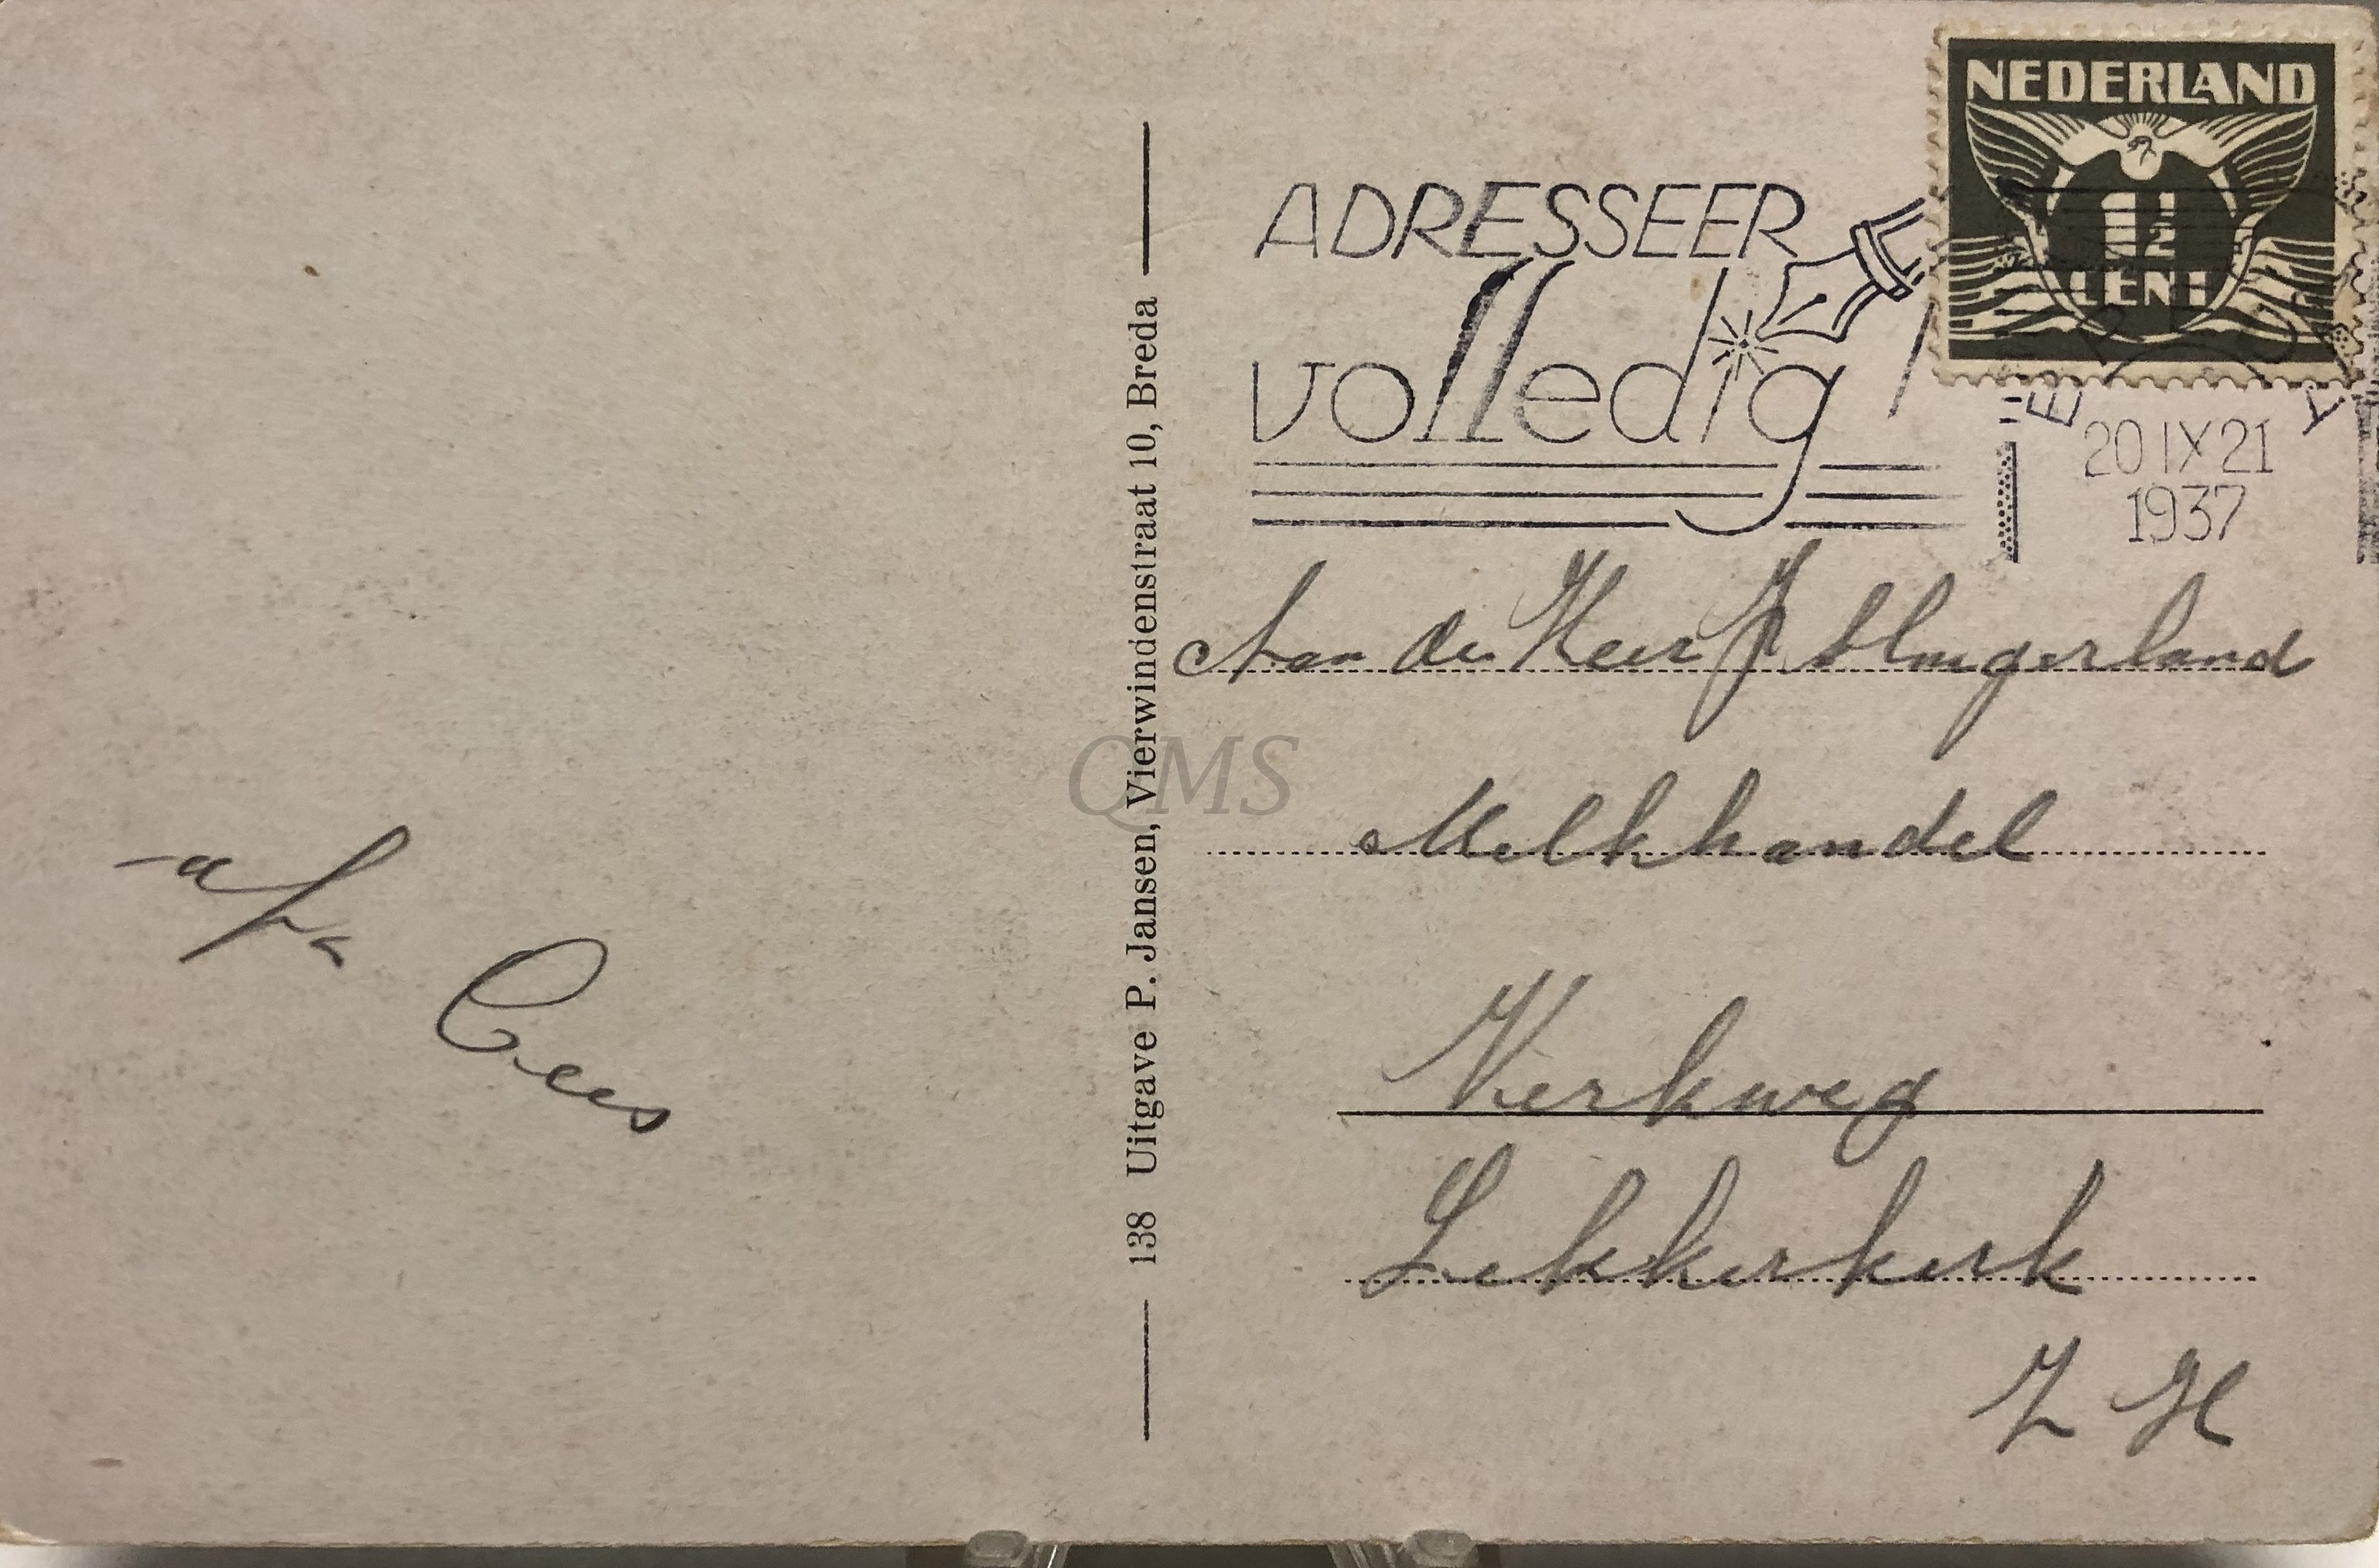 NEDERLAND
1½
CENT
ADRESSEER
volledig!
BREDA
20 IX 21
1937
Aan de Heer J Slingerland
Melkhandel
Kerkweg
Lekkerkerk
Z H
afz
Cees
138 Uitgave P. Jansen, Vierwindenstraat 10, Breda
QMS